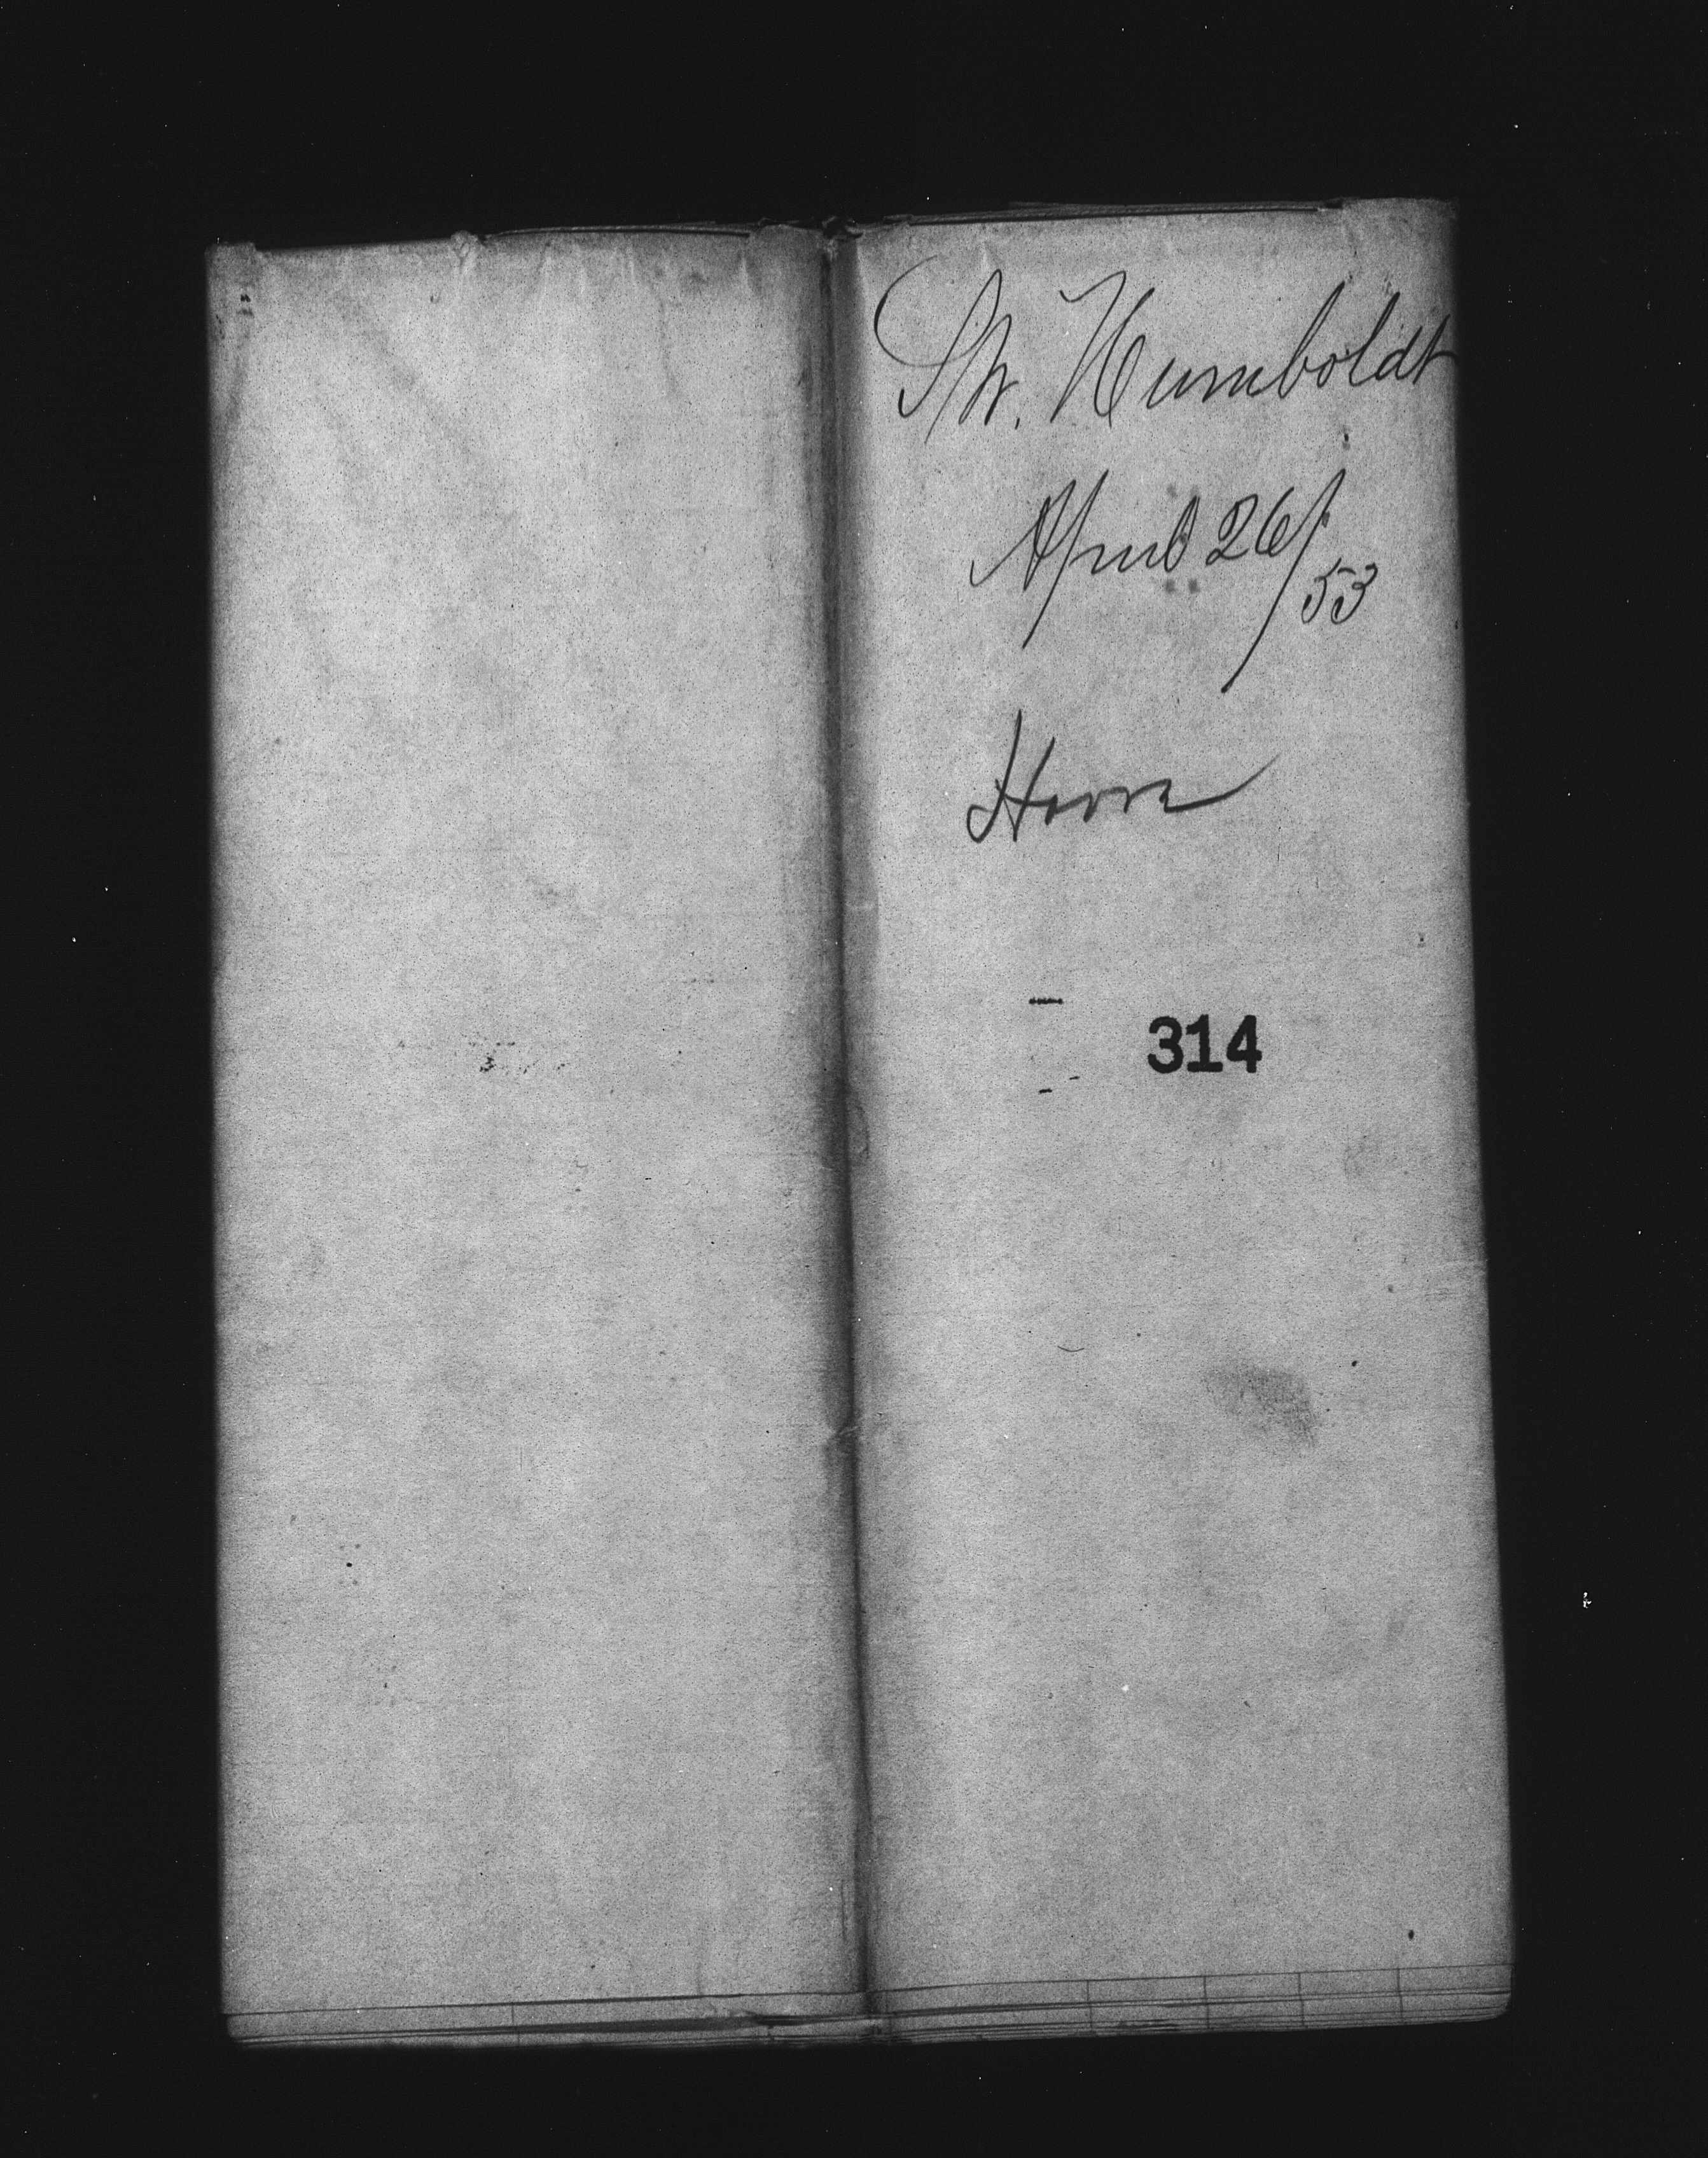 Sh. Humboldt
April 26/53
Horn
314